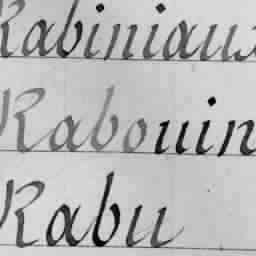 Rabiniaux
Rabouin
Rabu